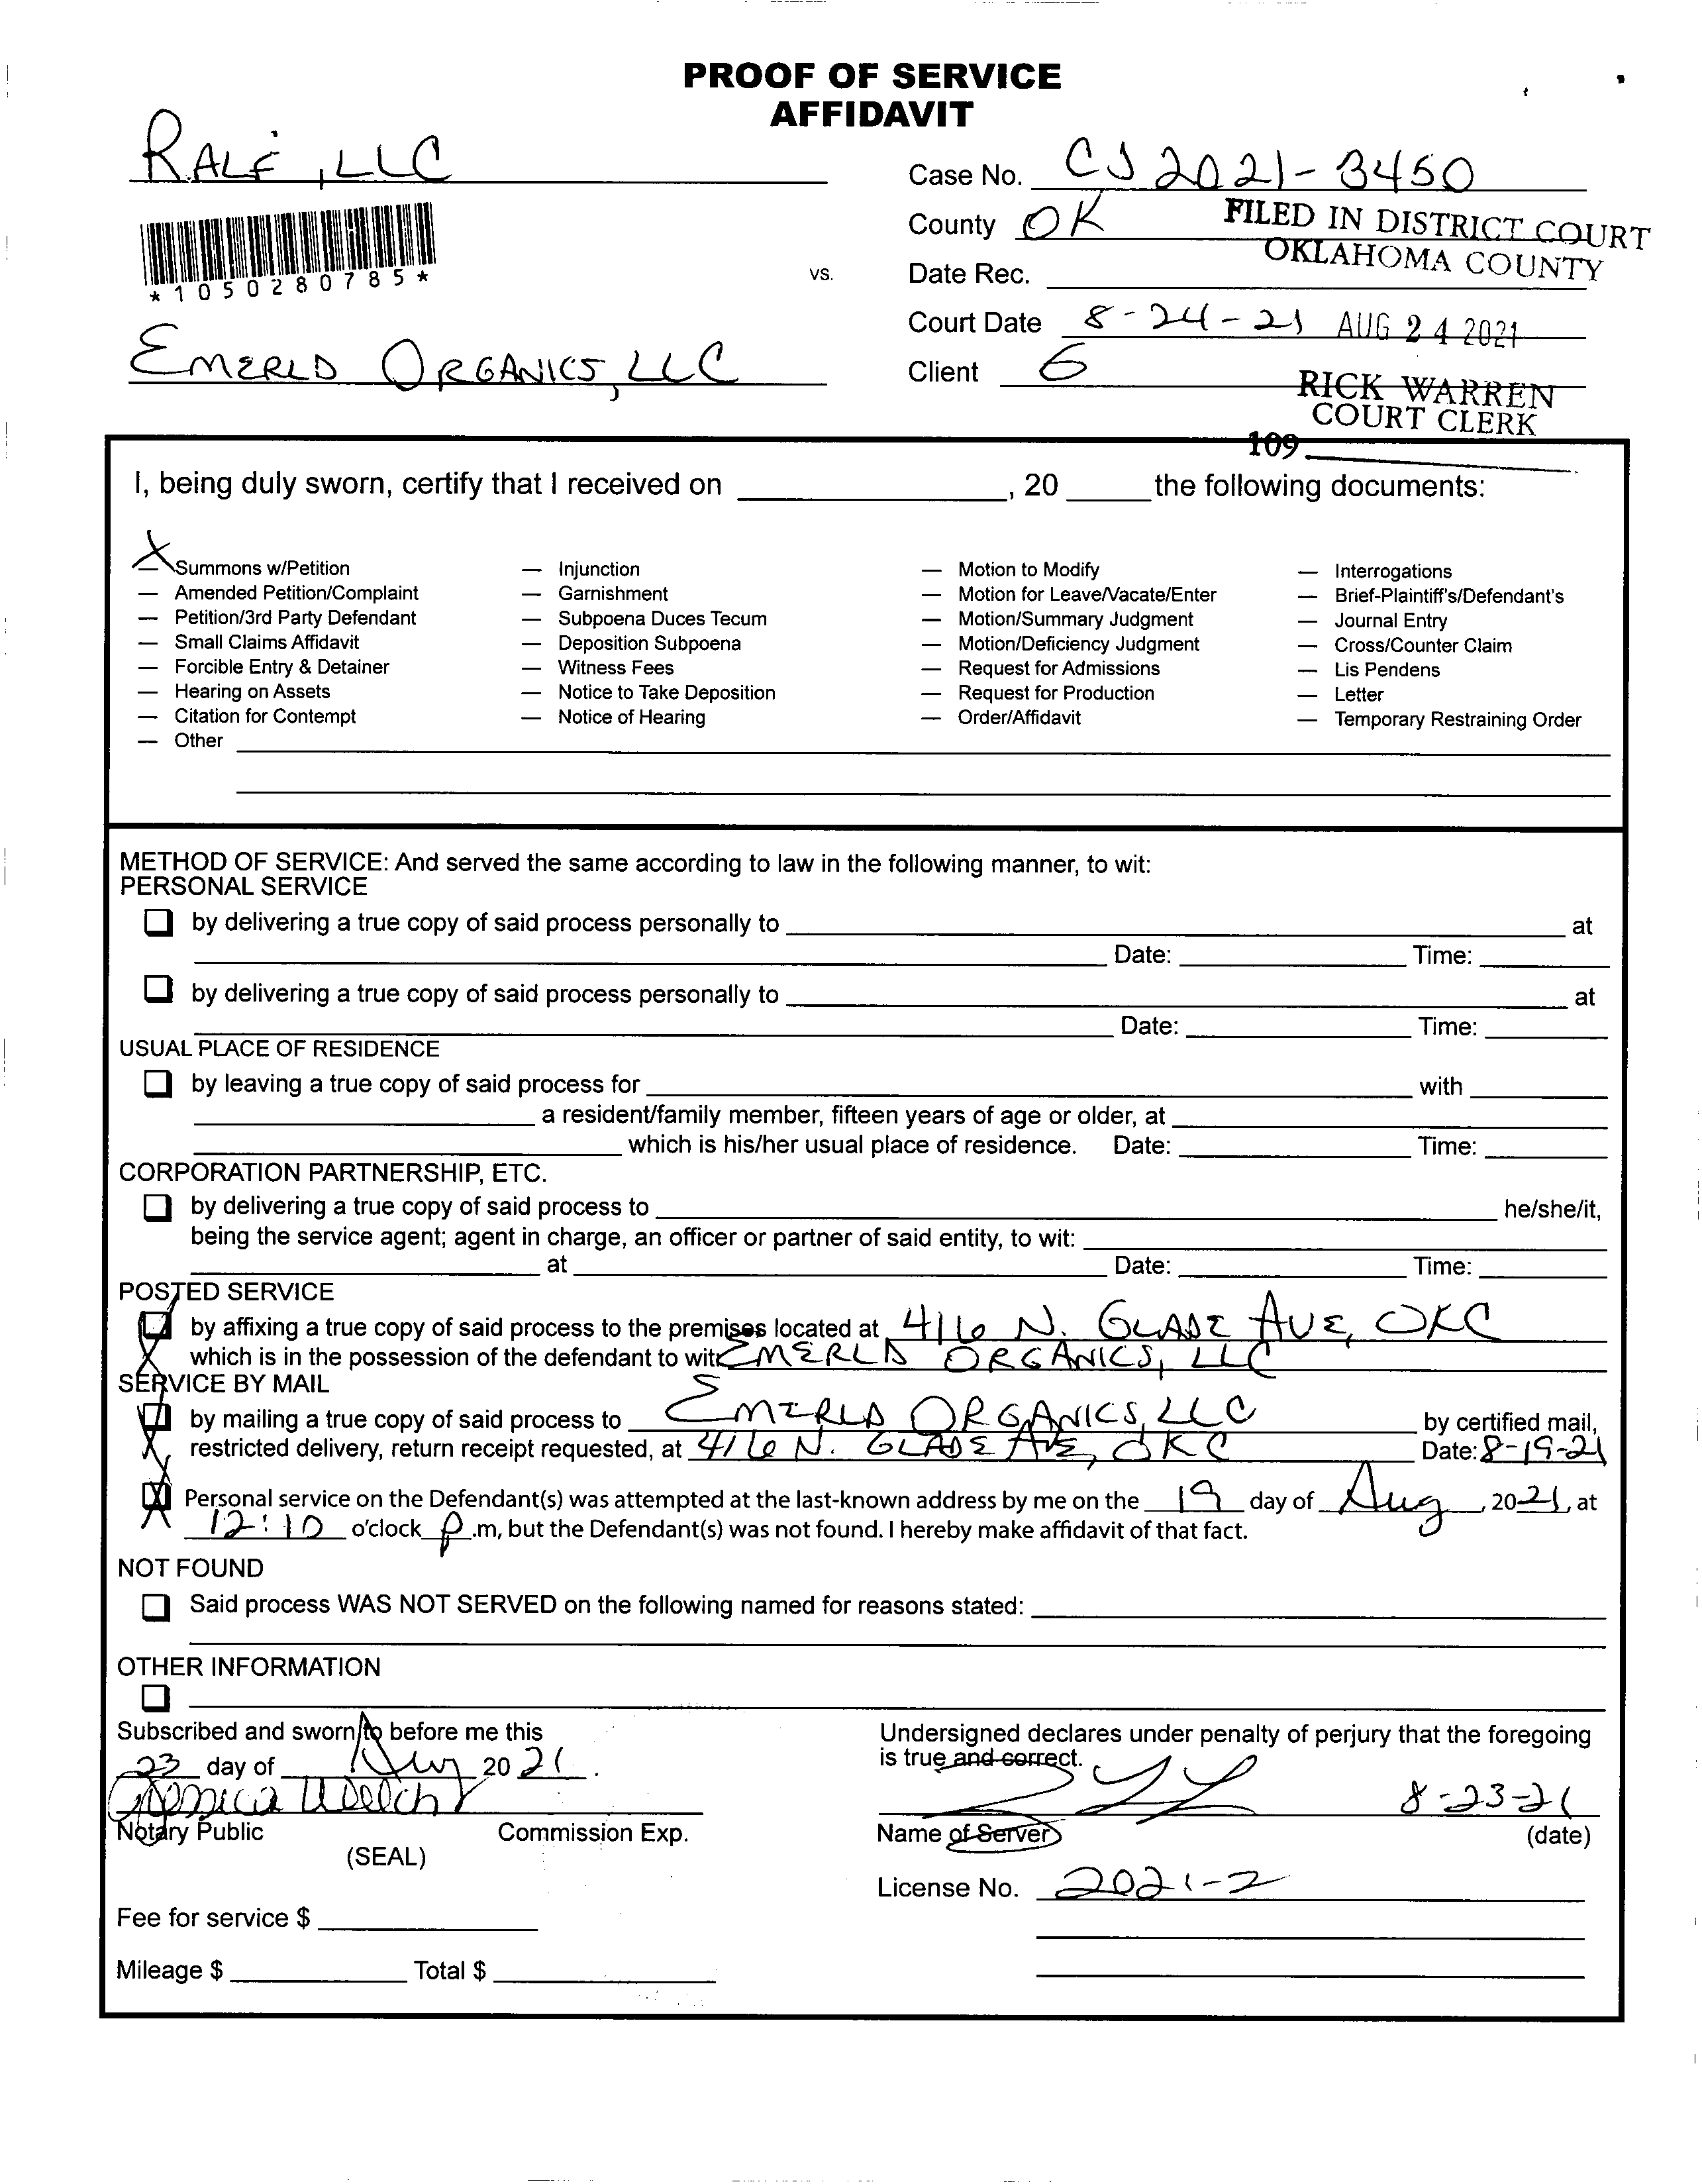 PROOF OF SERVICE
AFFIDAVIT
RALE, LLC
Case No. CJ 2021-3450
County OK
FILED IN DISTRICT COURT
OKLAHOMA COUNTY
*1050280785*
vs.
Date Rec.
Court Date 8-24-21 AUG 24 2021
EMERLD ORGANICS, LLC
Client 6
RICK WARREN
COURT CLERK
109
I, being duly sworn, certify that I received on , 20 the following documents:
X
Summons w/Petition
Amended Petition/Complaint
Petition/3rd Party Defendant
Small Claims Affidavit
Forcible Entry & Detainer
Hearing on Assets
Citation for Contempt
Other
Injunction
Garnishment
Subpoena Duces Tecum
Deposition Subpoena
Witness Fees
Notice to Take Deposition
Notice of Hearing
Motion to Modify
Motion for Leave/Vacate/Enter
Motion/Summary Judgment
Motion/Deficiency Judgment
Request for Admissions
Request for Production
Order/Affidavit
Interrogations
Brief-Plaintiff's/Defendant's
Journal Entry
Cross/Counter Claim
Lis Pendens
Letter
Temporary Restraining Order
METHOD OF SERVICE: And served the same according to law in the following manner, to wit:
PERSONAL SERVICE
by delivering a true copy of said process personally to at
Date: Time:
by delivering a true copy of said process personally to at
Date: Time:
USUAL PLACE OF RESIDENCE
by leaving a true copy of said process for with
a resident/family member, fifteen years of age or older, at
which is his/her usual place of residence. Date: Time:
CORPORATION PARTNERSHIP, ETC.
by delivering a true copy of said process to he/she/it,
being the service agent; agent in charge, an officer or partner of said entity, to wit:
at Date: Time:
POSTED SERVICE
by affixing a true copy of said process to the premises located at 416 N. GLADE AVE, OKC
which is in the possession of the defendant to wit: EMERLD ORGANICS, LLC
SERVICE BY MAIL
by mailing a true copy of said process to EMERLD ORGANICS, LLC by certified mail,
restricted delivery, return receipt requested, at 416 N. GLADE AVE, OKC Date: 8-19-21
Personal service on the Defendant(s) was attempted at the last-known address by me on the 19 day of Aug, 2021, at
12:10 o'clock p.m, but the Defendant(s) was not found. I hereby make affidavit of that fact.
NOT FOUND
Said process WAS NOT SERVED on the following named for reasons stated:
OTHER INFORMATION
Subscribed and sworn to before me this
23 day of Aug 2021.
Jessica Welch
Notary Public Commission Exp.
(SEAL)
Fee for service $
Mileage $ Total $
Undersigned declares under penalty of perjury that the foregoing
is true and correct.
8-23-21
Name of Server (date)
License No. 2021-2